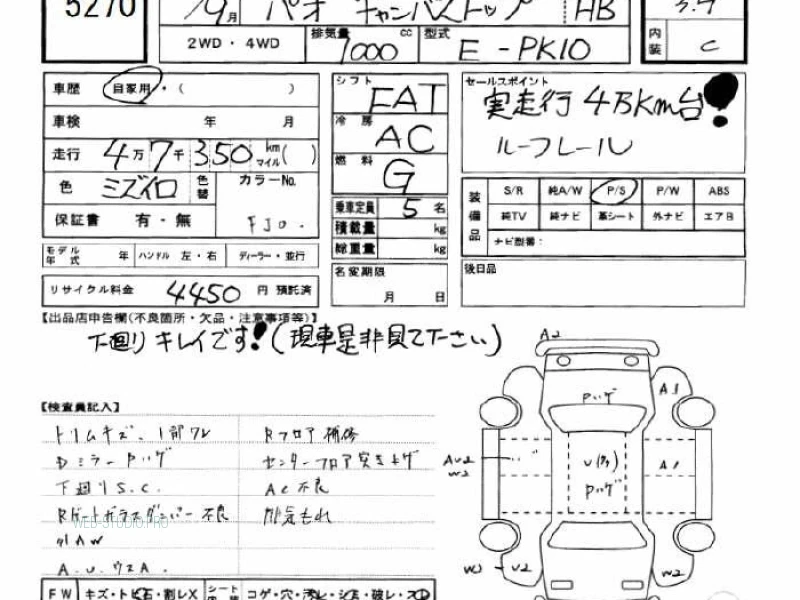 5270
9月 パオ キャンバストップ HB
3.5
2WD・4WD 排気量 1000 cc 型式 E-PK10 内装 C
車歴 自家用・( )
車検 年 月
走行 4万7千350 km マイル( )
色 ミズイロ 色替 カラーNo.
保証書 有・無 FJ0.
モデル年式 年 ハンドル 左・右 ディーラー・並行
リサイクル料金 4450 円 預託済
シフト FAT
冷房 AC
燃料 G
乗車定員 5 名
積載量 kg
総重量 kg
名変期限
月 日
セールスポイント
実走行 4万km台!
ルーフレール
装備品 S/R 純A/W P/S P/W ABS
純TV 純ナビ 革シート 外ナビ エアB
ナビ型番:
後日品
【出品店申告欄(不良箇所・欠品・注意事項等)】
下廻りキレイです!(現車是非見て下さい)
【検査員記入】
トリムキズ、1部ワレ
Dミラーサビ
下廻りS.C.
Rゲートガラスダンパー不良
外AW
A.U.ウスA.
Rフロア補修
センターフロア突き上げ
AC不良
排気もれ
WEB-STUDIO.PRO
A2
A1
A1
W2
FW キズ・トビ石・割レX シート コゲ・穴・汚レ・シミ・破レ・スレ